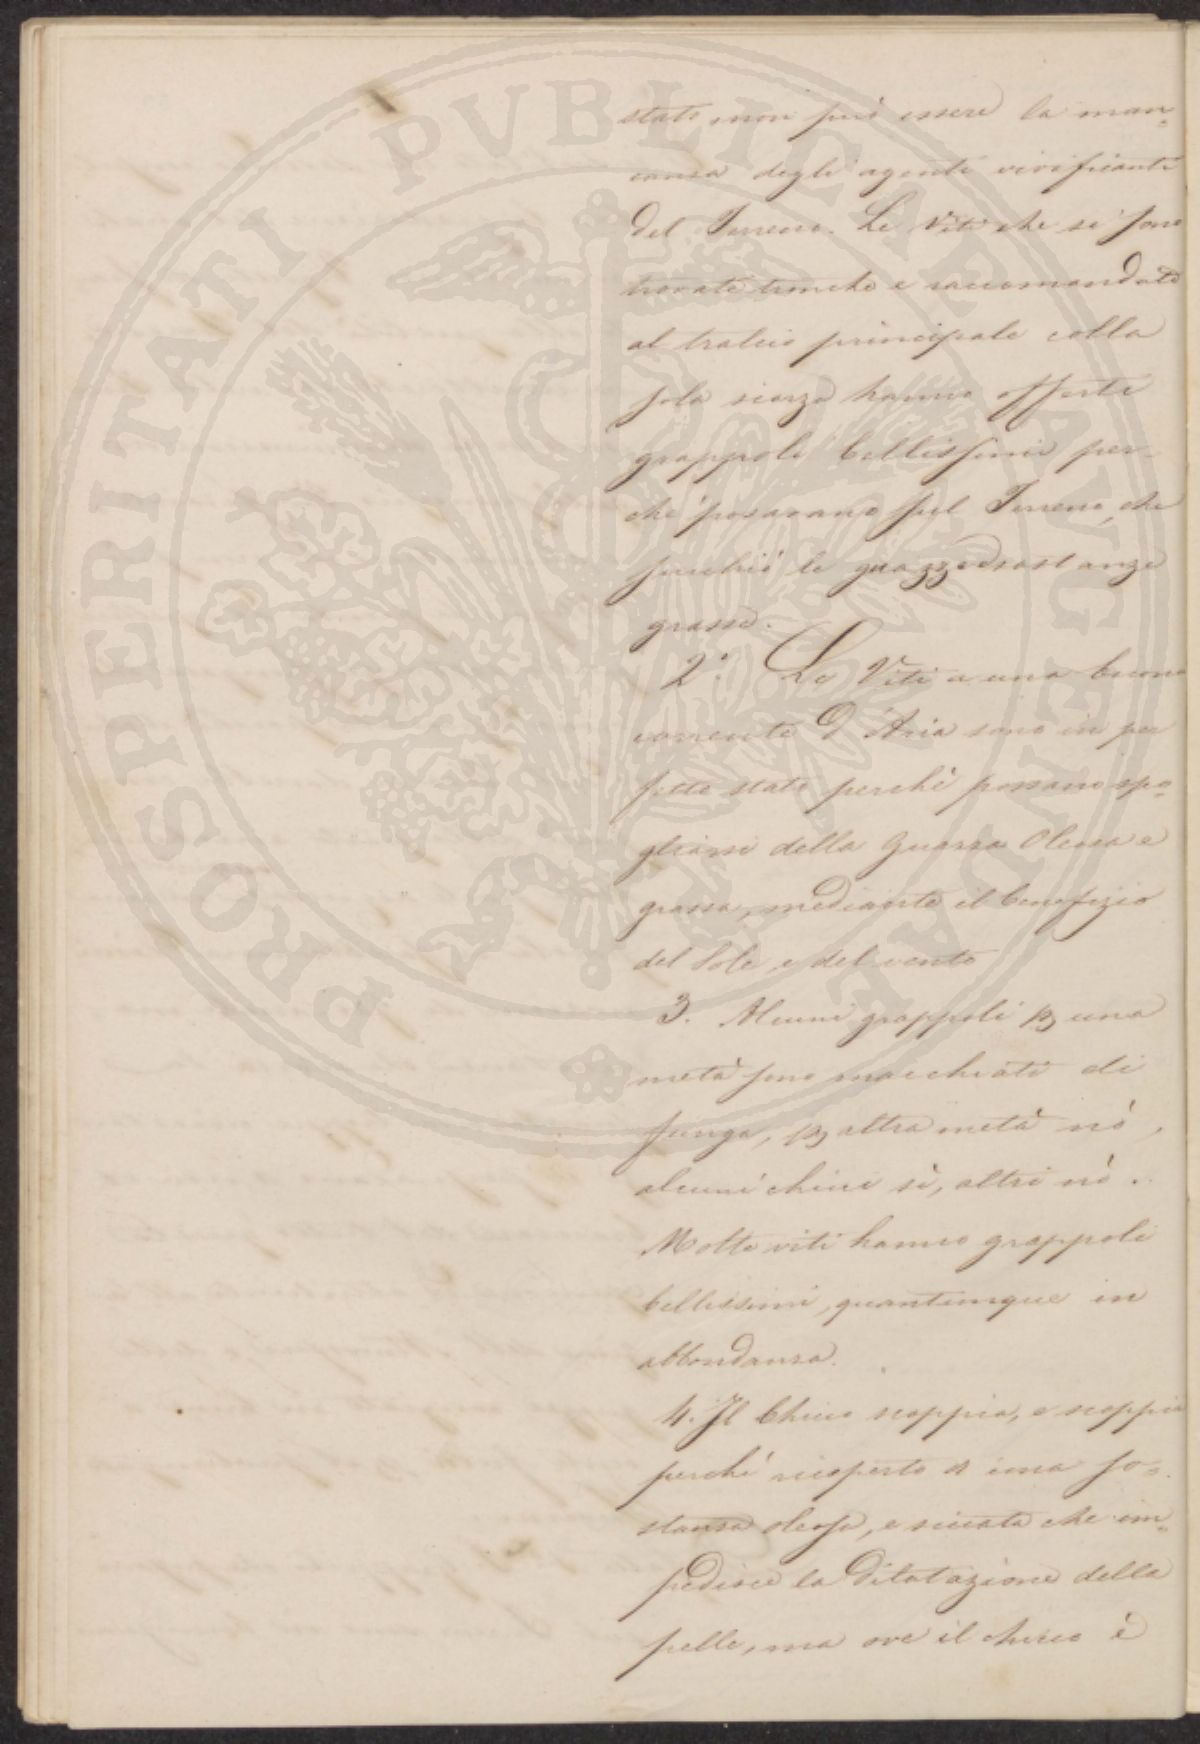 PROSPERITATI PVBLICAE AVGENDAE
stato, non può essere la man=
canza degli agenti vivificanti
del Terreno. Le Viti che si sono
trovate tronche e raccomandate
al tralcio principale colla
sola scorza hanno offerte
grappoli bellissimi per-
chè posavano sul Terreno, che
succhiò le guazze e sostanze
grasse.
2°. Le Viti a una buona
corrente d'Aria sono in per
fetto stato perchè possano spo=
gliarsi della Guazza Oleosa e
grassa, mediante il benefizio
del Sole, e del vento
3. Alcuni grappoli p una
metà sono macchiati di
fungo, p altra metà nò,
alcuni chicci sì, altri nò.
Molte viti hanno grappoli
bellissimi, quantunque in
abbondanza.
4. Il Chicco scoppia, e scoppia
perchè ricoperto d una so=
stanza oleosa, e siccata che im=
pedisce la dilatazione della
pelle, ma ove il chicco è